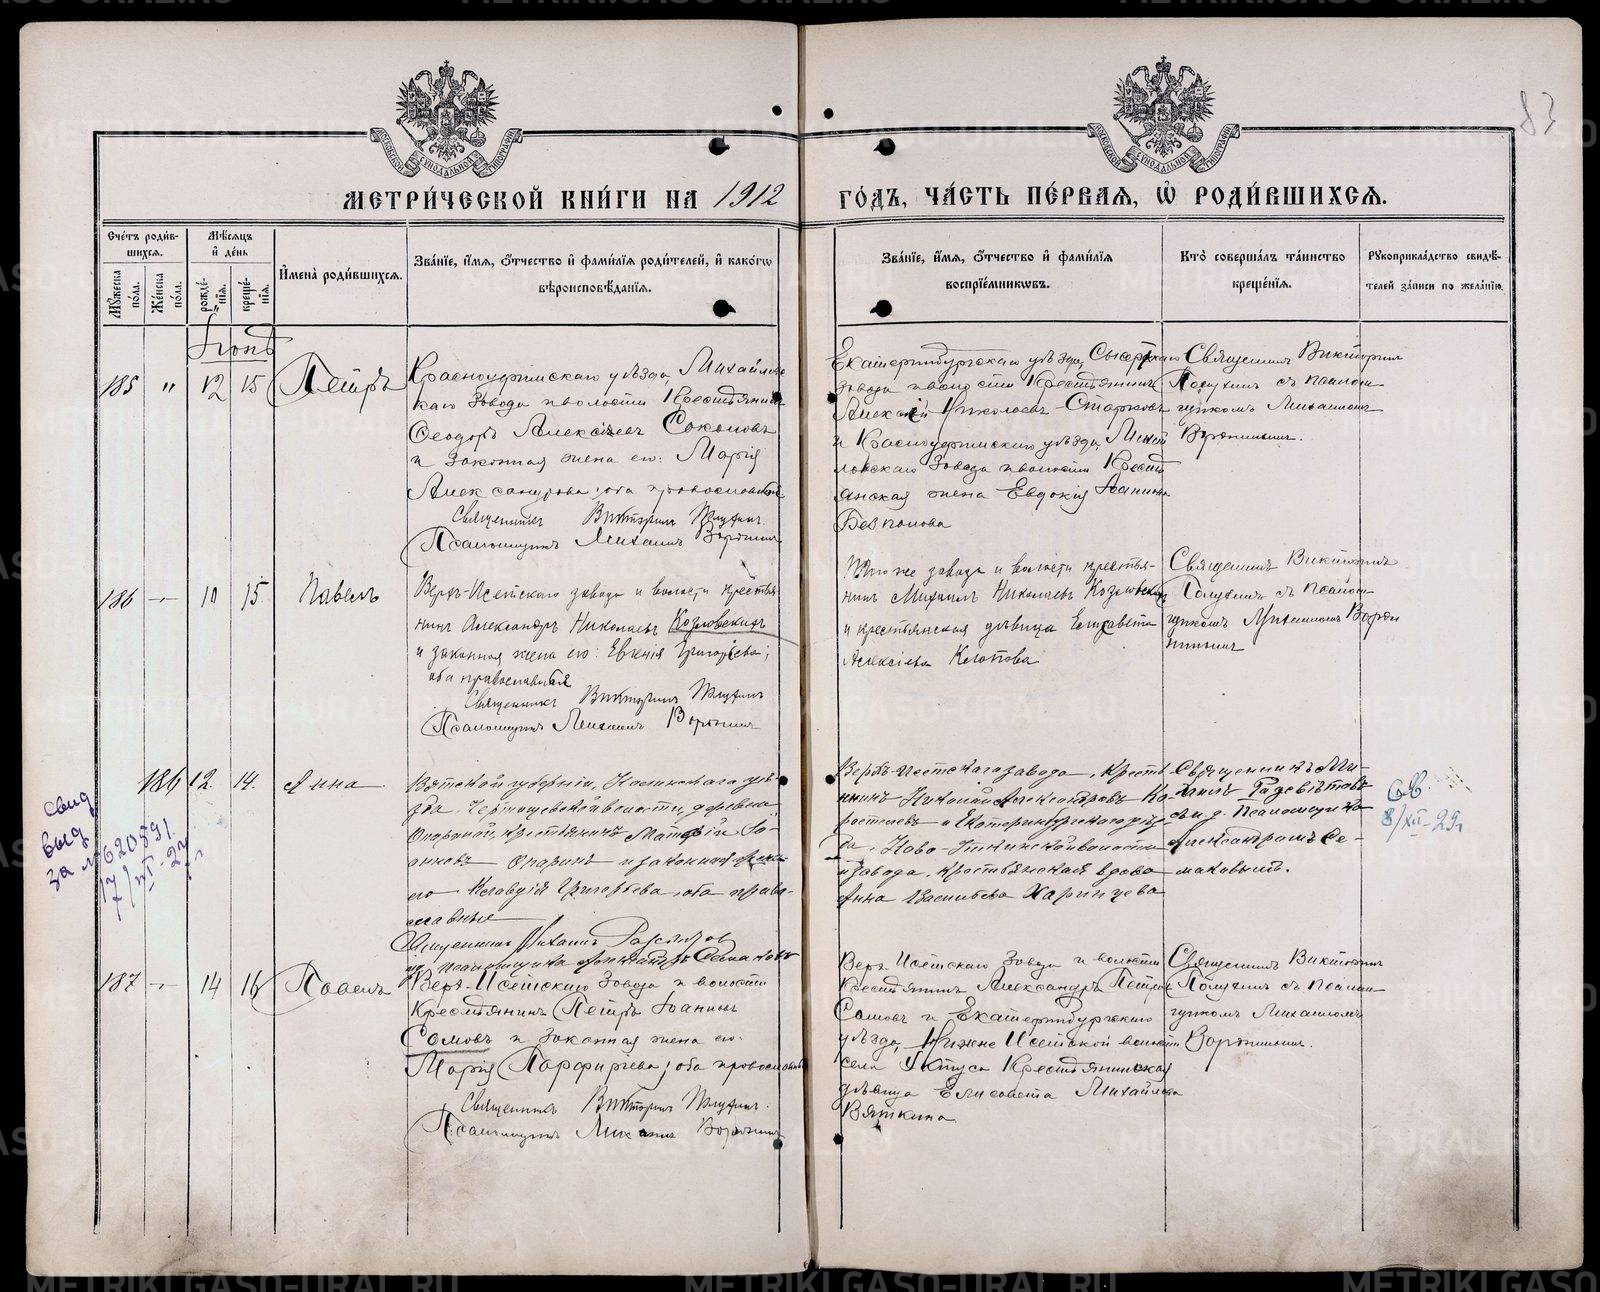 МЕТРИ́ЧЕСКОЙ КНИ́ГИ НА 1912
ГО́ДЪ, ЧА́СТЬ ПЕ́РВАЯ, Ѽ РОДИ́ВШИХСЯ.
83
Сче́тъ роди́в-
шихся.
Мѣ́сяцъ
и҆ де́нь
Мꙋ́жеска
по́ла.
Же́нска
по́ла.
рожде́-
нїѧ.
креще́-
нїѧ.
И҆мена̀ роди́вшихся.
Зва́нїе, и҆́мѧ, ѻ҆́тчество и҆ фами́лїѧ роди́телей, и҆ како́гѡ
вѣроисповѣ́данїѧ.
Зва́нїе, и҆́мѧ, ѻ҆́тчество и҆ фами́лїѧ
воспрїе́мникѡвъ.
Кто̀ соверша́лъ та́инство
креще́нїѧ.
Рꙋкоприкла́дство свидѣ́-
телей за́писи по жела́нїю.
Іюнь
185 " 12 15 Петръ
Красноуфимскаго уѣзда, Михайловс
каго Завода и волости Крестьянинъ
Ѳеодоръ Алексѣевъ Соколовъ
и Законная жена его: Марія
Александрова; оба православные
Священникъ Викторинъ
Псаломщикъ Михаилъ Воронинъ
Екатеринбургскаго уѣзда, Сысертскаго
Завода и волости Крестьянинъ
Алексѣй Николаевъ Старковъ
и Красноуфимскаго уѣзда, Михай
ловскаго Завода и волости Крестъ
янская жена Евдокія Іоаннова
Безпалова
Священникъ Викторинъ
съ псалом
щикомъ Михаиломъ
Воронинымъ.
186 — 10 15 Павелъ
Верхъ-Исетскаго завода и волости крестья
нинъ Александръ Николаевъ Козловскихъ
и законная жена его: Евгенія Григорьева;
оба православные
Священникъ Викторинъ
Псаломщикъ Михаилъ Воронинъ
Того же завода и волости крестья-
нинъ Михаилъ Николаевъ Козловскихъ
и крестьянская дѣвица Елизавета
Алексѣева Колотова
Священникъ Викторинъ
съ псалом
щикомъ Михаиломъ Ворон
инымъ
186 12. 14. Анна
Вятской губерніи, уѣ-
зда, волости, деревни
крестьянинъ Матфій Іо-
анновъ Опаринъ и законная жена
его Клавдія Григорьева, оба право-
славные
Священникъ Михаилъ
Псаломщика Александръ
Верхъ-Исетскаго завода, крестья
нинъ Николай Александровъ Ко-
ростелевъ и Екатеринбургскаго уѣз-
да, волости
и завода, крестьянская вдова
Анна Васильева Харинцева
Священникъ Ми-
хаилъ
съ и. д. Псаломщика
Александромъ Се-
маковымъ.
свид
выд
за № 620891.
17/XI-27 г
СВ.
8/XII-29г
187 — 14 16 Павелъ
Верх-Исетскаго Завода и волости
Крестьянинъ Петръ Іоанновъ
Сомовъ и Законная жена его:
Марія Парфирьева; оба православные
Священникъ Викторинъ
Псаломщикъ Михаилъ Воронинъ
Верх-Исетскаго Завода и волости
Крестьянинъ Александръ Петровъ
Сомовъ и Екатеринбургскаго
уѣзда, Нижне Исетской волости
села Уктуса Крестьянинская
дѣвица Елисавета Михайлова
Вяткина
Священникъ Викторинъ
съ псалом-
щикомъ Михаиломъ
Воронинымъ.
METRIKI.GASO-URAL.RU